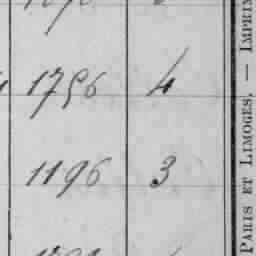 1756 4
1196 3
PARIS ET LIMOGES. — IMPRIM